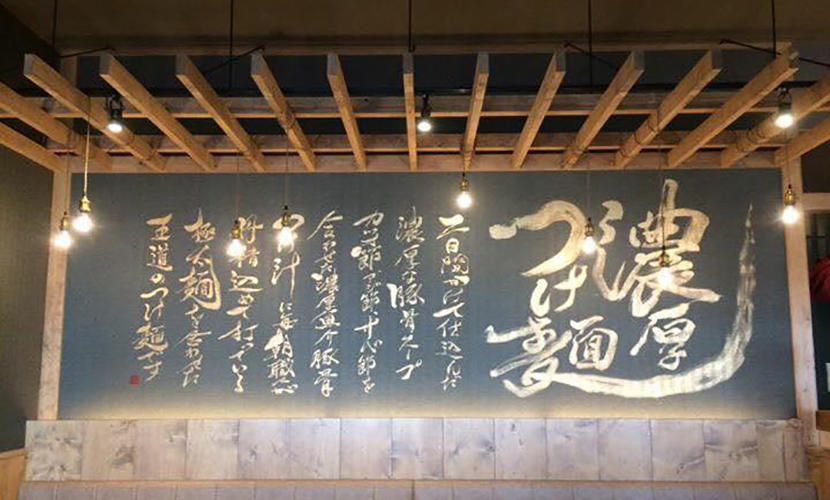 濃厚
つけ麺
二日間かけて仕込んだ
濃厚な豚骨スープ
カツオ節サバ節
合わせた濃厚魚介豚骨
つけ汁に毎朝職
丹精込めて打っている
極太麺を合わせた
王道のつけ麺です